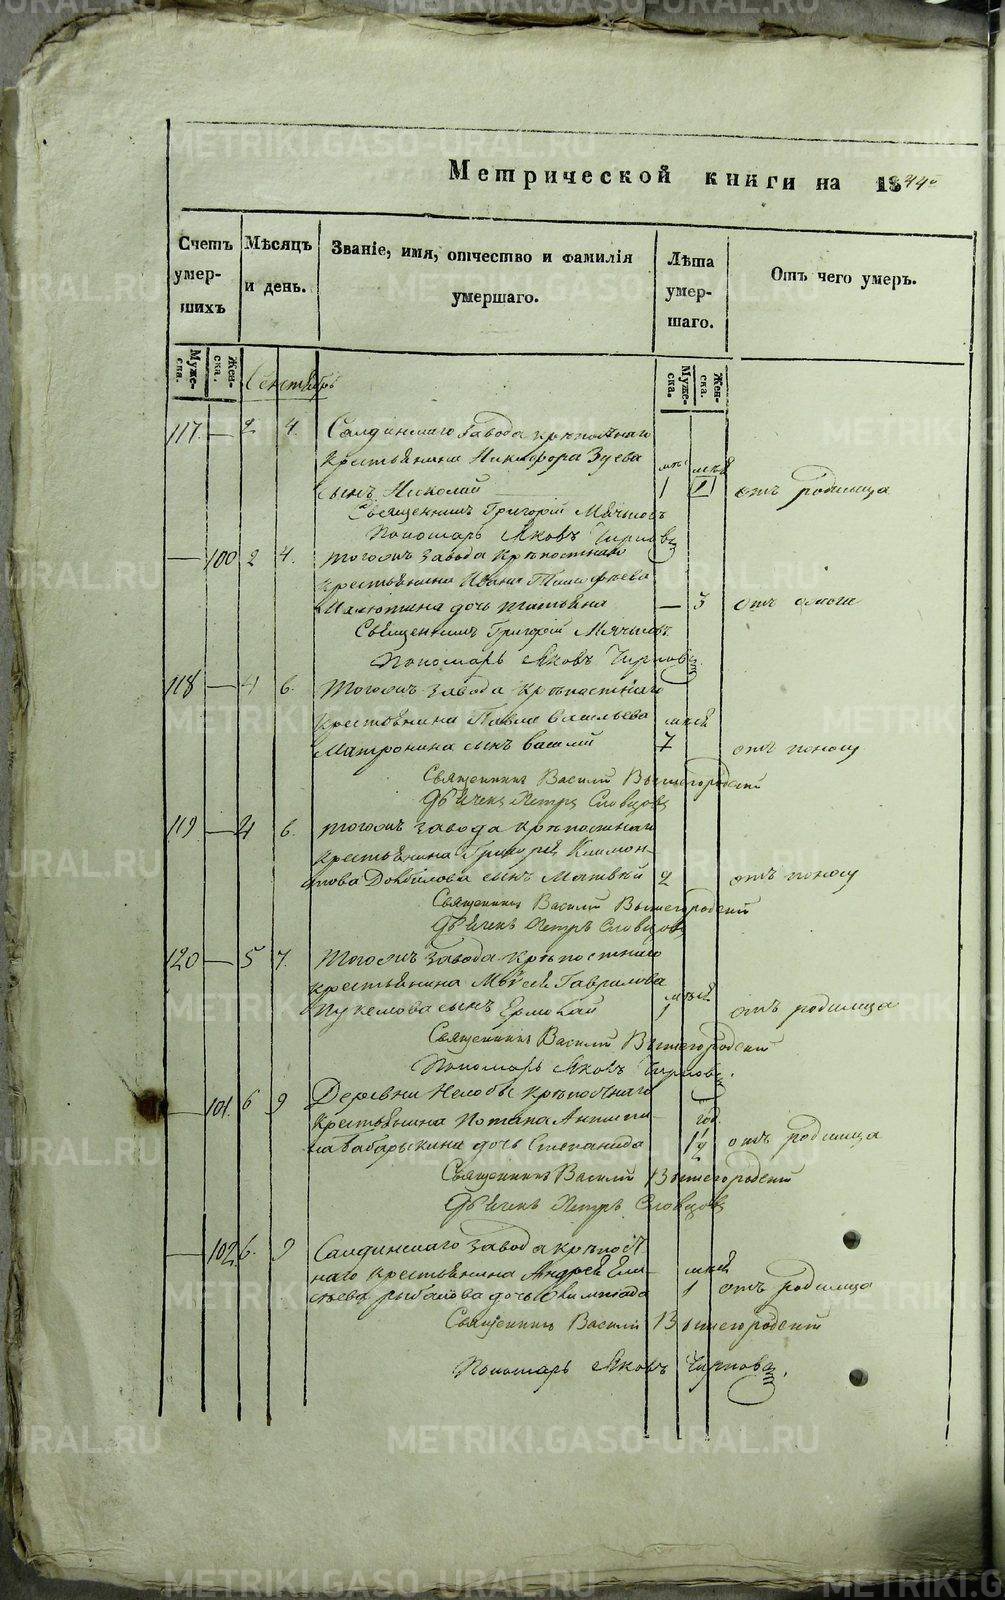 Метрической книги на 1844й
Счетъ умер- шихъ
Мѣсяцъ и день.
Званіе, имя, отчество и фамилія умершаго.
Лѣта умер- шаго.
Отъ чего умеръ.
Муже- ска.
Жен- ска.
Муже- ска.
Жен- ска.
Сентябрь
117 — 2 4. Салдинскаго завода крѣпостнаго
крестьянина Никифора Зуева
сынъ Николай 1 отъ родимца
Священникъ Григорій Мячковъ
Пономарь Яковъ Чирковъ
— 100 2 4. Тогожъ завода крѣпостнаго
крестьянина Ивана Тимофѣева
дочь Татьяна — 5
Священникъ Григорій Мячковъ
Пономарь Яковъ Чирковъ
118 — 4 6. Тогожъ завода крѣпостнаго
крестьянина Павла Васильева мцей
Матронина сынъ Василій 7 отъ поносу
Священникъ Василій Вышегородскій
Дьячекъ Петръ Словцовъ
119 — 4 6. Тогожъ завода крѣпостнаго
крестьянина Григорья Климон-
това сынъ Матвѣй 2 отъ поносу
Священникъ Василій Вышегородскій
Дьячекъ Петръ Словцовъ
120 — 5 7. Тогожъ завода крѣпостнаго
крестьянина Моисея Гаврилова
сынъ Ермолай 1 отъ родимца
Священникъ Василій Вышегородскій
Пономарь Яковъ Чирковъ.
— 101. 6 9 Деревни Нелобы крѣпостнаго
крестьянина Потапа Антипи- год.
на Бабарыкина дочь Степанида 1 1/2 отъ родимца
Священникъ Василій Вышегородскій
Дьячекъ Петръ Словцовъ
— 102 6. 9 Салдинскаго завода крѣпост-
наго крестьянина Андрея Ели- мцей
сѣева Рыбакова дочь 1 отъ родимца
Священникъ Василій Вышегородскій
Пономарь Яковъ Чирковъ.
METRIKI.GASO-URAL.RU